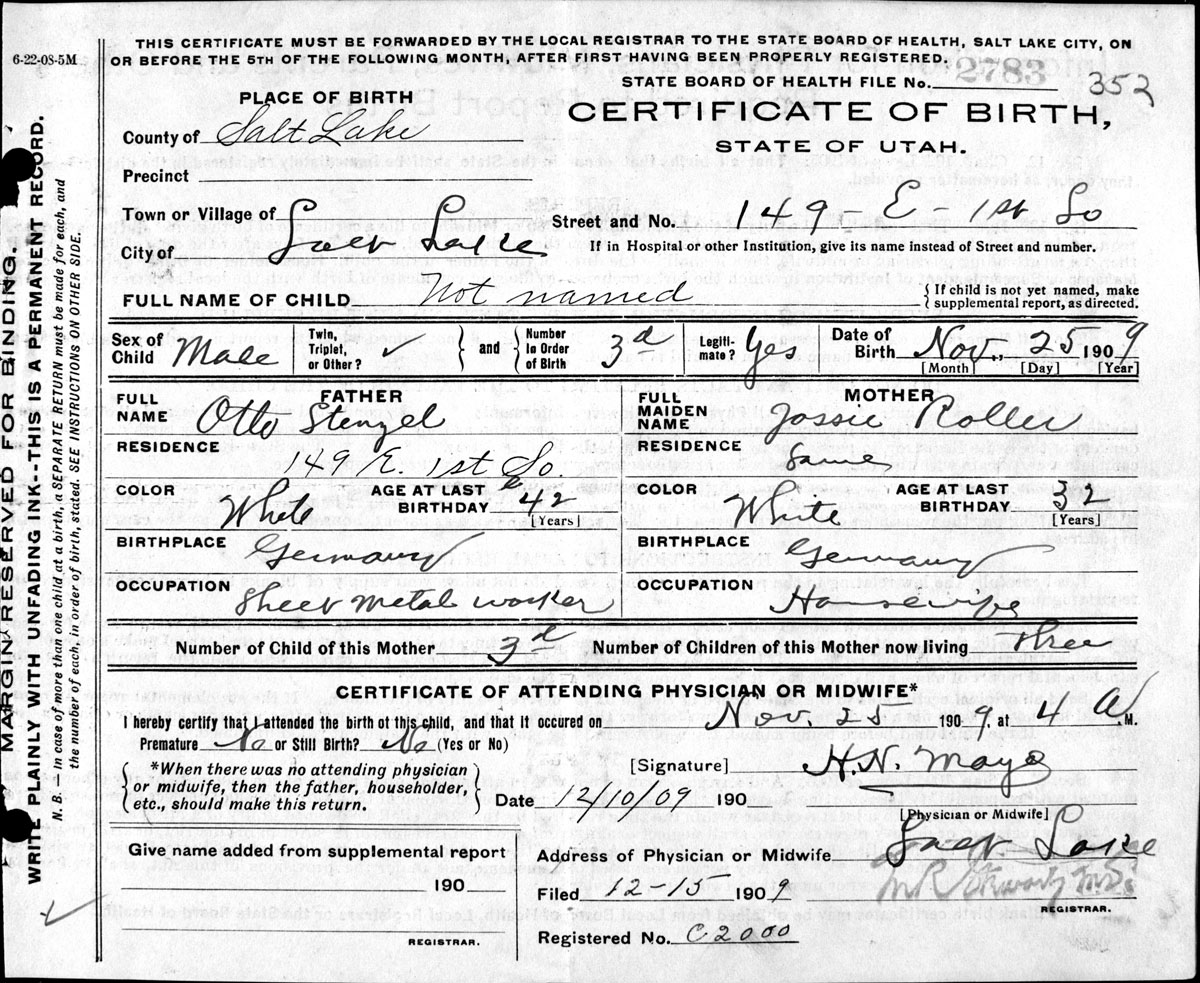 6-22-08-5M
THIS CERTIFICATE MUST BE FORWARDED BY THE LOCAL REGISTRAR TO THE STATE BOARD OF HEALTH, SALT LAKE CITY, ON
OR BEFORE THE 5TH OF THE FOLLOWING MONTH, AFTER FIRST HAVING BEEN PROPERLY REGISTERED:
STATE BOARD OF HEALTH FILE No. 2783 352
PLACE OF BIRTH
CERTIFICATE OF BIRTH,
STATE OF UTAH.
County of Salt Lake
Precinct
Town or Village of
City of Salt Lake
Street and No. 149 - E - 1st So
If in Hospital or other Institution, give its name instead of Street and number.
FULL NAME OF CHILD Not named
{If child is not yet named, make
supplemental report, as directed.
Sex of Child Male Twin, Triplet, or Other? ✓ and Number In Order of Birth 3d Legiti-mate? Yes Date of Birth Nov., 25 1909
[Month] [Day] [Year]
FATHER
FULL NAME Otto Stenzel
RESIDENCE 149 E. 1st So.
COLOR White AGE AT LAST BIRTHDAY 42 [Years]
BIRTHPLACE Germany
OCCUPATION Sheet metal worker
MOTHER
FULL MAIDEN NAME Jossie Roller
RESIDENCE Same
COLOR White AGE AT LAST BIRTHDAY 32 [Years]
BIRTHPLACE Germany
OCCUPATION Housewife
Number of Child of this Mother 3d Number of Children of this Mother now living Three
CERTIFICATE OF ATTENDING PHYSICIAN OR MIDWIFE*
I hereby certify that I attended the birth of this child, and that it occured on Nov. 25 1909, at 4 A M.
Premature No or Still Birth? No (Yes or No)
[Signature] H.N. Mayo
*When there was no attending physician
or midwife, then the father, householder,
etc., should make this return.
Date 12/10/09 190
[Physician or Midwife]
Give name added from supplemental report
190
REGISTRAR.
Address of Physician or Midwife Salt Lake
Filed 12-15 1909
REGISTRAR.
Registered No. C2000
MARGIN RESERVED FOR BINDING.
WRITE PLAINLY WITH UNFADING INK--THIS IS A PERMANENT RECORD.
N. B.—In case of more than one child at a birth, a SEPARATE RETURN must be made for each, and
the number of each, in order of birth, stated. SEE INSTRUCTIONS ON OTHER SIDE.